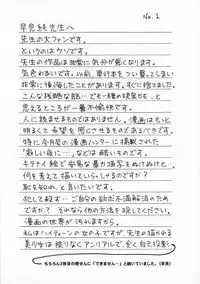 No.1
早見純先生へ
先生の大ファンです。
というのはウソです。
先生の作品は非常に気分が悪くなります。
気色わるいです。以前、単行本をつい買ってしまい
非常に後悔したことがあります。すぐに捨てました。
こんな残酷な話…でも一種の現実かも、と
思えるところが一番不愉快です。
人に読ませるものではありません。漫画はもっと
明るくて希望を感じさせるものであるべきです。
特に今月号の漫画ハンターに掲載された
「殺しい夜に…」などは酷いものです。
キタナイ絵で安易な暴力描写をぬけぬけと…
何を考えて描いていらっしゃるのですか?
恥を知れ、と言いたいです。
犯して殺す…ご自分の欲求不満解消のため
ですか? それなら他の方法を探してください。
漫画の世界が汚れますから。
私はハイティーンの女の子ですが、先生の描かれる
美少女は限りなくアンリアルで、全く自己投影
もちろん2枚目の便せんに「できません…」と続いていました。(早見)